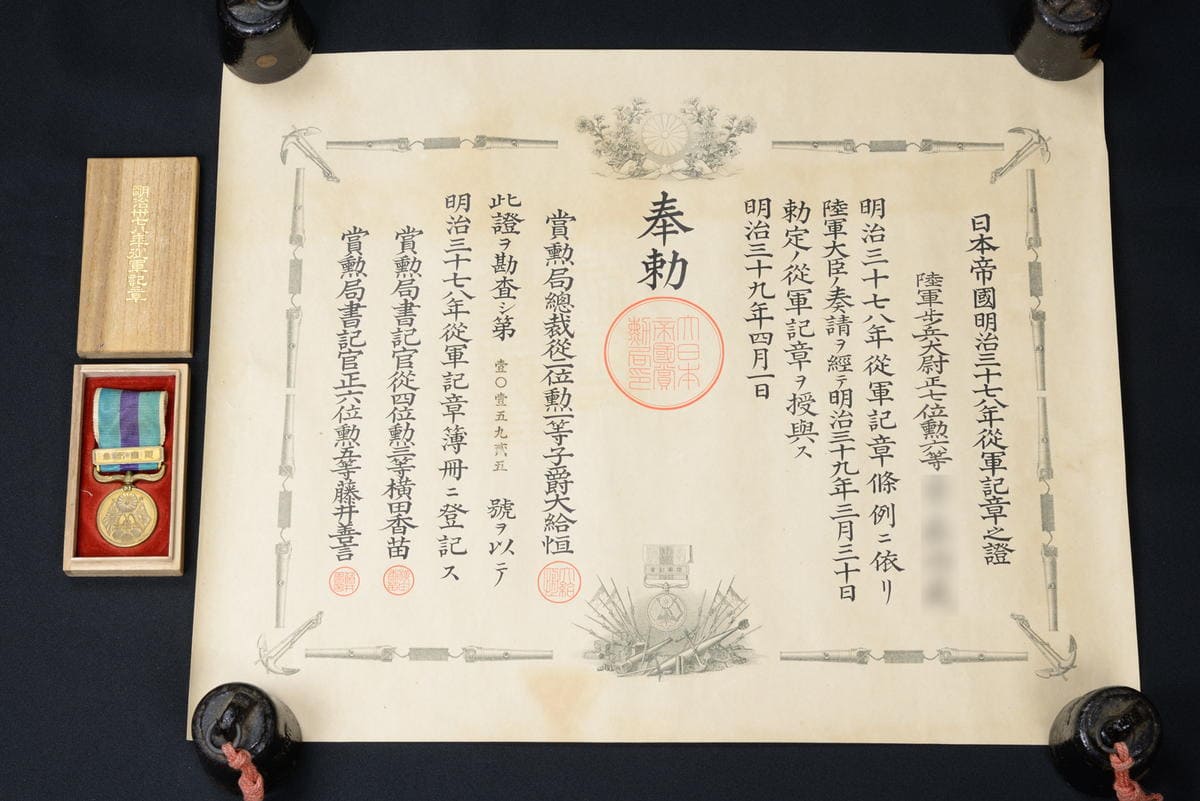 日本帝國明治三十七八年從軍記章之證
陸軍步兵大尉正七位勲六等
明治三十七八年從軍記章條例ニ依リ
陸軍大臣ノ奏請ヲ經テ明治三十九年三月三十日
勅定ノ從軍記章ヲ授與ス
明治三十九年四月一日
奉勅
大日本
帝國賞
勲局印
賞勲局總裁從二位勲一等子爵大給恒
此證ヲ勘査シ第壹〇壹五九貳五號ヲ以テ
明治三十七八年從軍記章簿冊ニ登記ス
賞勲局書記官從四位勲三等横田香苗
賞勲局書記官正六位勲五等藤井善言
明治卅七八年從軍記章